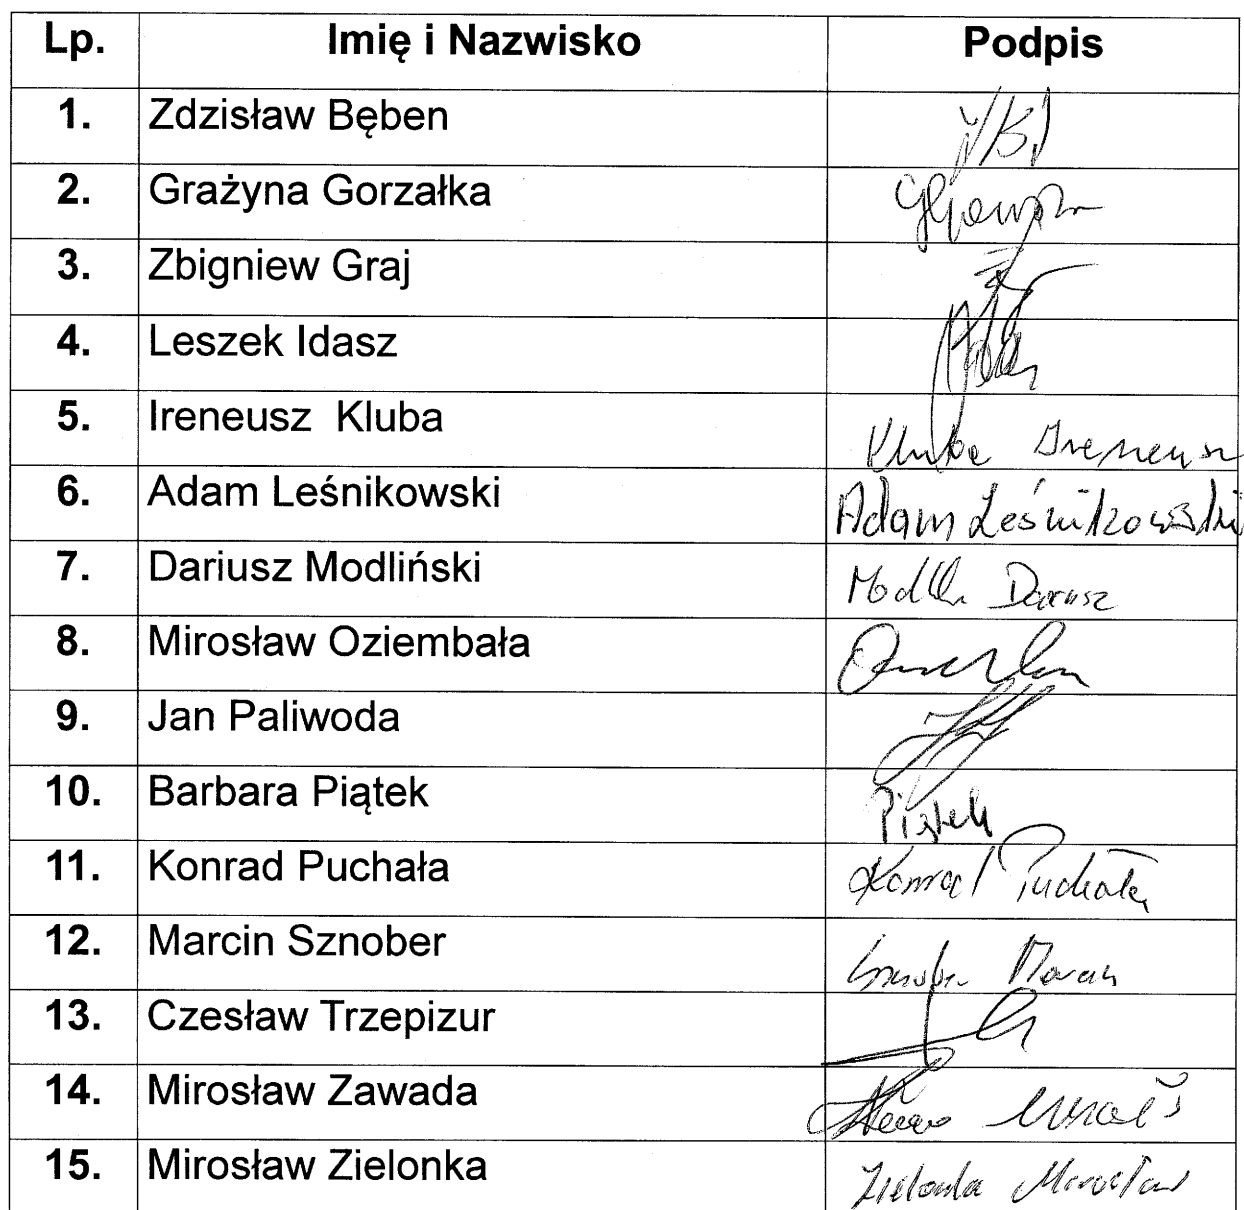 Lp. Imię i Nazwisko Podpis
1. Zdzisław Bęben
2. Grażyna Gorzałka
3. Zbigniew Graj
4. Leszek Idasz
5. Ireneusz Kluba Kluba Ireneusz
6. Adam Leśnikowski Adam Leśnikowski
7. Dariusz Modliński Dariusz
8. Mirosław Oziembała
9. Jan Paliwoda
10. Barbara Piątek Piątek
11. Konrad Puchała Konrad Puchała
12. Marcin Sznober Marcin
13. Czesław Trzepizur
14. Mirosław Zawada
15. Mirosław Zielonka Zielonka Mirosław